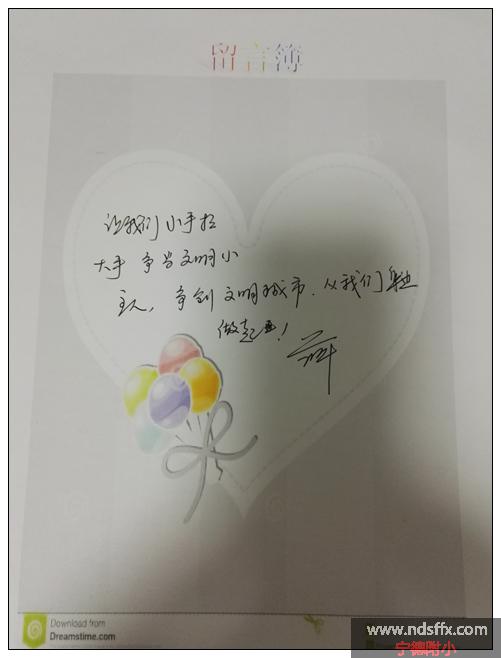 留言簿
让我们小手拉
大手 争当文明小
主人，争创文明城市，从我们身边
做起！
Download from
Dreamstime.com
www.ndsffx.com
宁德附小